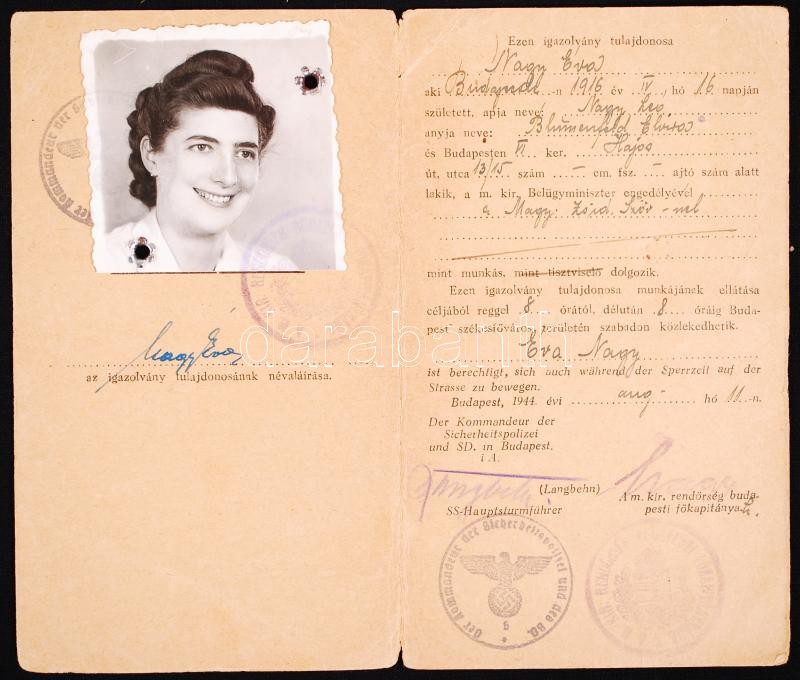 Nagy Éva
az igazolvány tulajdonosának névaláírása.
Ezen igazolvány tulajdonosa
Nagy Éva
aki Budapest -n 1916 év IV. hó 16. napján
született, apja neve: Nagy Leo
anyja neve: Blumenfeld Elvira
és Budapesten VI. ker. Hajós
út, utca 13/15 szám — em. fsz. — ajtó szám alatt
lakik, a m. kir. Belügyminiszter engedélyével
a Magy. Szöv-nél
mint munkás, mint tisztviselő dolgozik.
Ezen igazolvány tulajdonosa munkájának ellátása
céljából reggel 8 órától, délután 8 óráig Buda-
pest székesfőváros területén szabadon közlekedhetik.
Eva Nagy
ist berechtigt, sich auch während der Sperrzeit auf der
Strasse zu bewegen.
Budapest, 1944. évi aug. hó 11.-n.
Der Kommandeur der
Sicherheitspolizei
und SD. in Budapest.
i A.
Langbehn
(Langbehn)
SS-Hauptsturmführer
A m. kir. rendőrség buda-
pesti főkapitánya
Der Kommandeur der Sicherheitspolizei und des SD.
6
darabanth